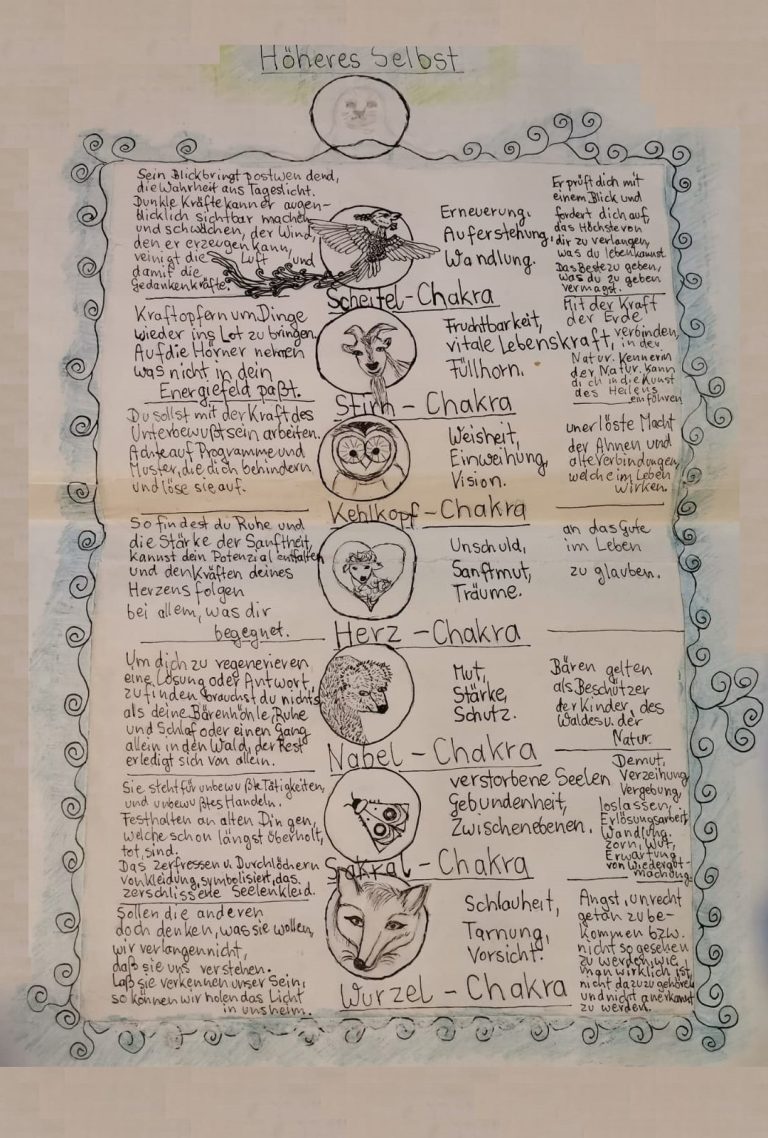 Höheres Selbst
Sein Blick bringt postwendend,
die Wahrheit ans Tageslicht.
Dunkle Kräfte kann er augen-
blicklich sichtbar machen
und schwächen, der Wind,
den er erzeugen kann,
reinigt die Luft und
damit die
Gedankenkräfte.
Erneuerung.
Auferstehung,
Wandlung.
Er prüft dich mit
einem Blick und
fordert dich auf
das Höchste von
dir zu verlangen,
was du leben kannst.
Das Beste zu geben,
was du zu geben
vermagst.
Scheitel-Chakra
Kraftopfern um Dinge
wieder ins Lot zu bringen.
Auf die Hörner nehmen
was nicht in dein
Energiefeld paßt.
Fruchtbarkeit,
vitale Lebenskraft,
Füllhorn.
Mit der Kraft
der Erde
verbinden,
in der
Natur. Kennerin
der Natur, kann
dich in die Kunst
des Heilens
einführen
Stirn-Chakra
Du sollst mit der Kraft des
Unterbewußtsein arbeiten.
Achte auf Programme und
Muster, die dich behindern
und löse sie auf.
Weisheit,
Einweihung,
Vision.
unerlöste Macht
der Ahnen und
alte Verbindungen,
welche im Leben
wirken.
Kehlkopf-Chakra
So findest du Ruhe und
die Stärke der Sanftheit,
kannst dein Potenzial entfalten
und den Kräften deines
Herzens folgen
bei allem, was dir
begegnet.
Unschuld,
Sanftmut,
Träume.
an das Gute
im Leben
zu glauben.
Herz-Chakra
Um dich zu regenerieren
eine Lösung oder Antwort,
zu finden brauchst du nichts
als deine Bärenhöhle, Ruhe
und Schlaf oder einen Gang
allein in den Wald, der Rest
erledigt sich von allein.
Mut,
Stärke,
Schutz.
Bären gelten
als Beschützer
der Kinder, des
Waldes u. der
Natur.
Nabel-Chakra
Sie steht für unbewußte Tätigkeiten,
und unbewußtes Handeln.
Festhalten an alten Dingen,
welche schon längst überholt,
tot, sind.
Das Zerfressen u. Durchlöchern
von Kleidung, symbolisiert, das
zerschlissene Seelenkleid.
verstorbene Seelen
Gebundenheit,
Zwischenebenen.
Demut,
Verzeihung,
Vergebung,
loslassen,
Erlösungsarbeit,
Wandlung.
Zorn, Wut,
Erwartung
von Wiedergut-
machung.
Sakral-Chakra
Sollen die anderen
doch denken, was sie wollen,
wir verlangen nicht,
daß sie uns verstehen.
Laß sie verkennen unser Sein,
so können wir holen das Licht
in uns heim.
Schlauheit,
Tarnung,
Vorsicht.
Angst, unrecht
getan zu be-
kommen bzw.
nicht so gesehen
zu werden, wie
man wirklich ist,
nicht dazuzugehören
und nicht anerkannt
zu werden.
Wurzel-Chakra